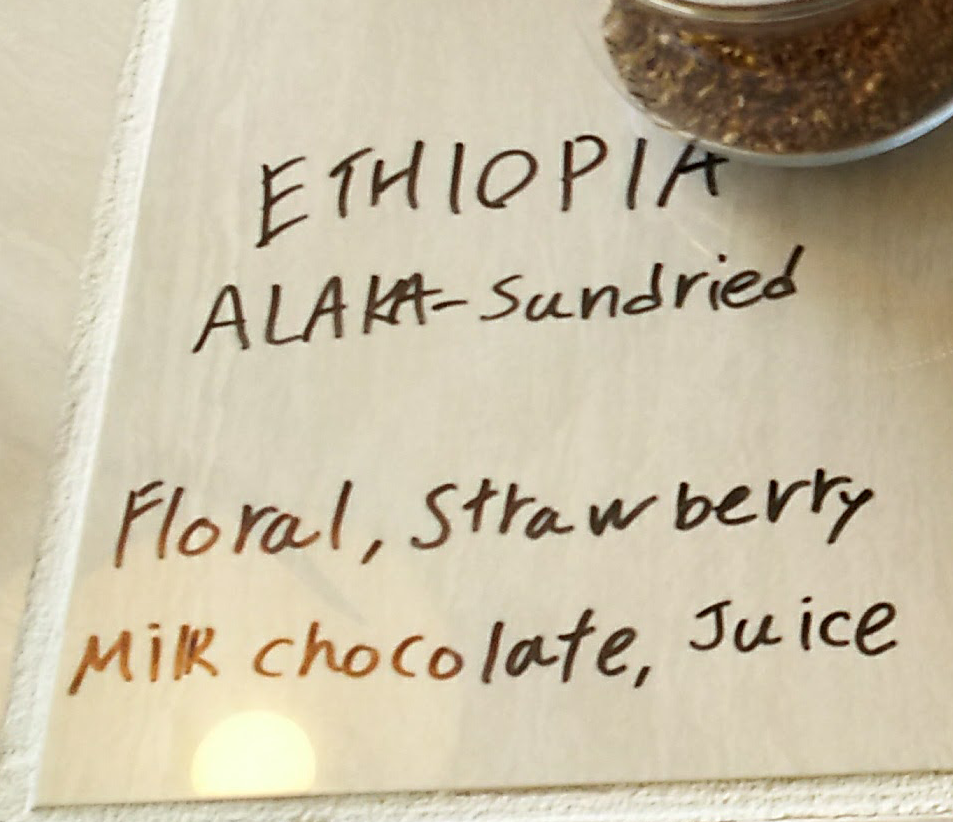 ETHIOPIA
ALAKA-Sundried
Floral, Strawberry
Milk chocolate, Juice